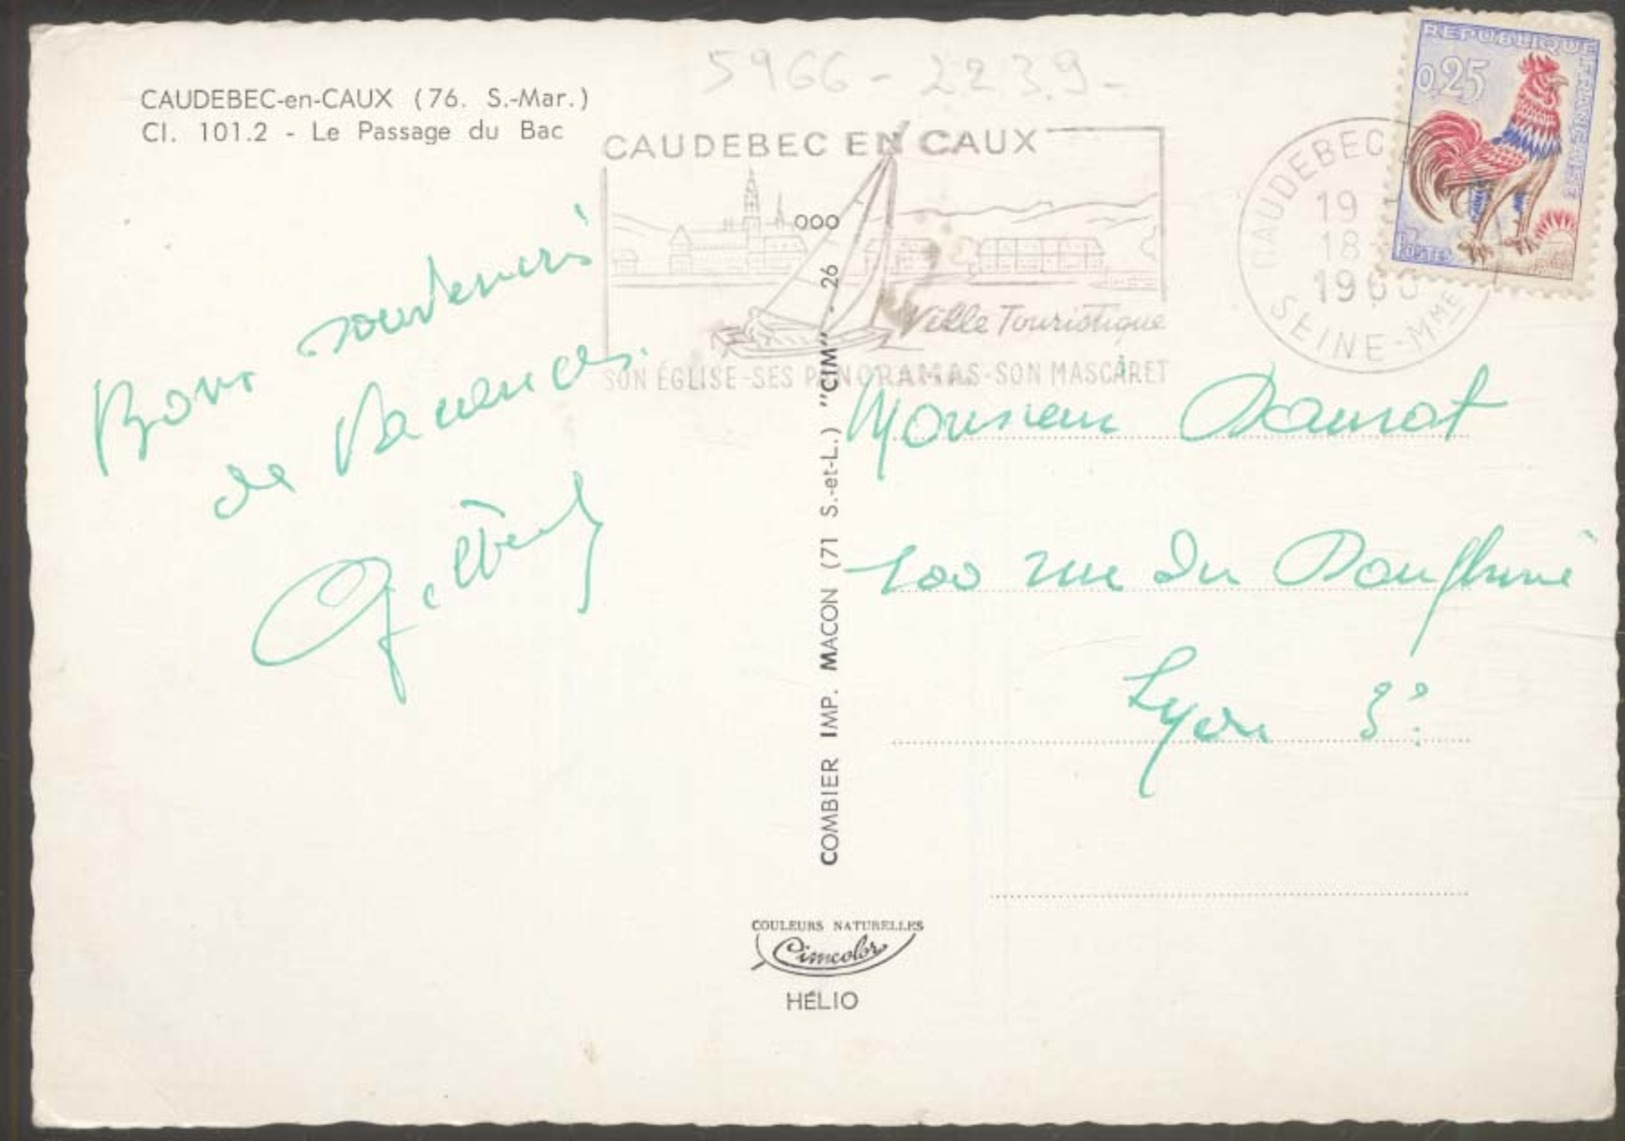 5966-2239-
CAUDEBEC-en-CAUX (76. S.-Mar.)
Cl. 101.2 - Le Passage du Bac
CAUDEBEC EN CAUX
Ville Touristique
SON ÉGLISE-SES PANORAMAS-SON MASCARET
CAUDEBEC
19
18
196
SEINE-MME
REPUBLIQUE FRANCAISE
0,25
POSTES
Bons souvenirs
de Vacances
Monsieur
100 rue du Dauphiné
Lyon 3e
COMBIER IMP. MACON (71 S.-et-L.) "CIM" - 26 000
COULEURS NATURELLES
Cimcolor
HÉLIO